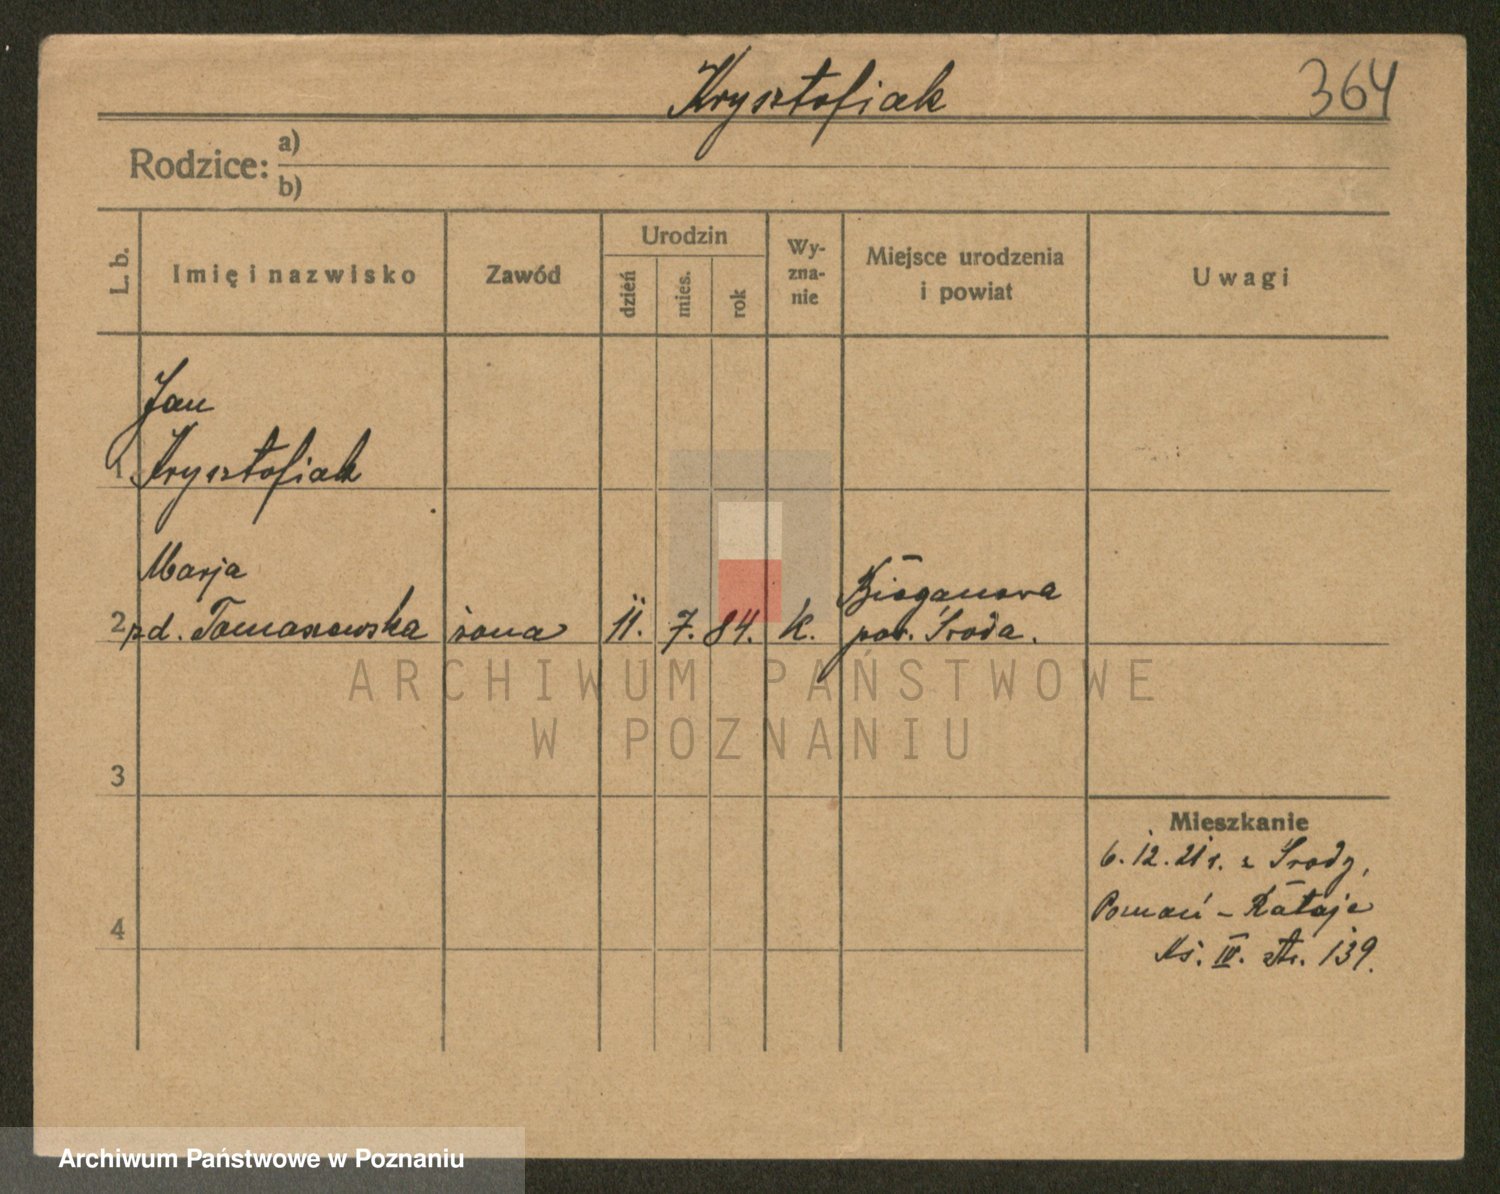 Krysztofiak
364
Rodzice: a)
b)
L. b.
Imię i nazwisko
Zawód
Urodzin
dzień
mies.
rok
Wy-
zna-
nie
Miejsce urodzenia
i powiat
Uwagi
Jan
1 Krysztofiak
Marja
2 zd. Tomaszewska żona 11. 7. 84. k.
pow. Środa.
3
4
Mieszkanie
6.12.21 r. z Środy,
Poznań - Rataje
Ks. IV. str. 139.
ARCHIWUM PAŃSTWOWE
W POZNANIU
Archiwum Państwowe w Poznaniu